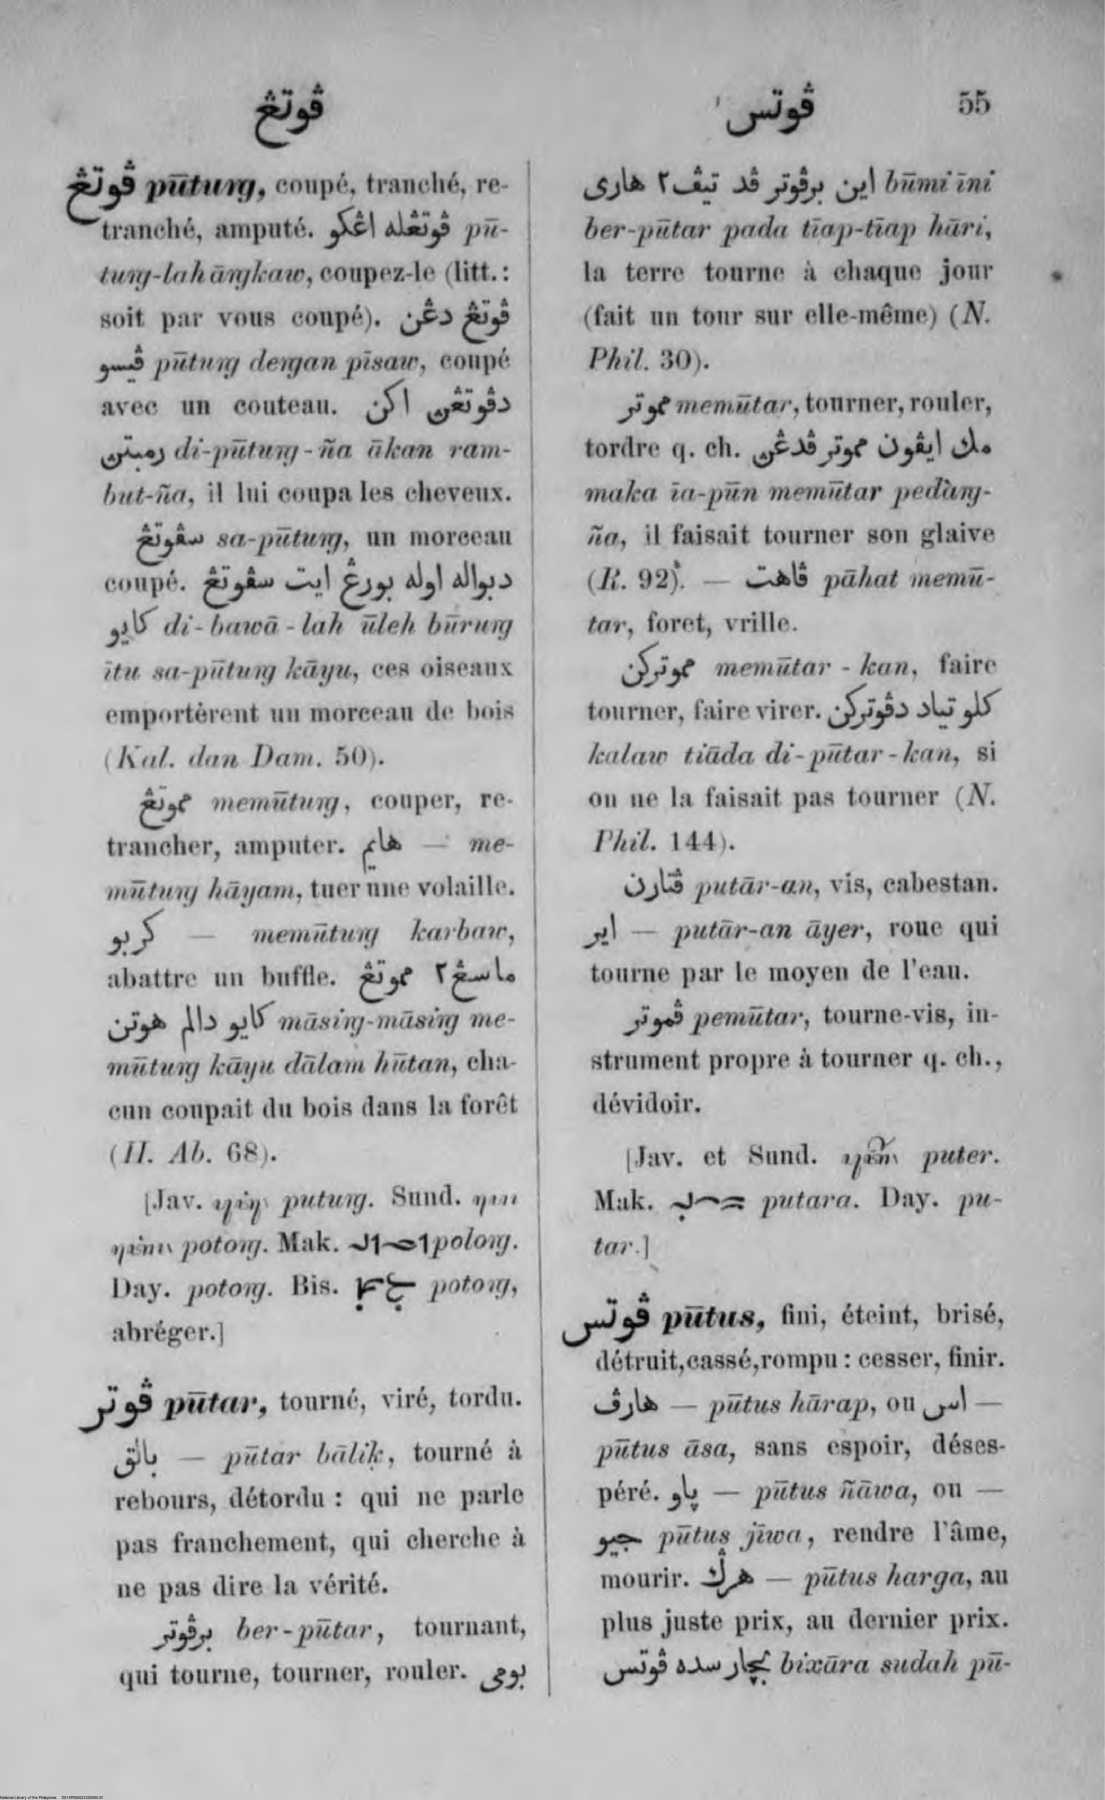 ڤوتڠ
ڤوتس 55
ڤوتڠ pūtuṇg, coupé, tranché, re-
tranché, amputé. ڤوتڠله اڠكو pū-
tuṇg-lah āṇgkaw, coupez-le (litt.:
soit par vous coupé). ڤوتڠ دڠن
ڤيسو pūtuṇg deṇgan pīsaw, coupé
avec un couteau. دڤوتڠڽ اكن
رمبتڽ di-pūtuṇg-ña ākan ram-
but-ña, il lui coupa les cheveux.
سڤوتڠ sa-pūtuṇg, un morceau
coupé. دبواله اوله بورڠ ايت سڤوتڠ
كايو di-bawā-lah ūleh būruṇg
ītu sa-pūtuṇg kāyu, ces oiseaux
emportèrent un morceau de bois
(Kal. dan Dam. 50).
مموتڠ memūtuṇg, couper, re-
trancher, amputer. هايم — me-
mūtuṇg hāyam, tuer une volaille.
كربو — memūtuṇg karbaw,
abattre un buffle. ماسڠ٢ مموتڠ
كايو دالم هوتن māsiṇg-māsiṇg me-
mūtuṇg kāyu dālam hūtan, cha-
cun coupait du bois dans la forêt
(H. Ab. 68).
[Jav. putuṇg. Sund.
potoṇg. Mak. poloṇg.
Day. potoṇg. Bis. potoṇg,
abréger.]
ڤوتر pūtar, tourné, viré, tordu.
بالق — pūtar bāliḳ, tourné à
rebours, détordu : qui ne parle
pas franchement, qui cherche à
ne pas dire la vérité.
برڤوتر ber-pūtar, tournant,
qui tourne, tourner, rouler. بومي
اين برڤوتر ڤد تيڤ٢ هاري būmi īni
ber-pūtar pada tīap-tīap hāri,
la terre tourne à chaque jour
(fait un tour sur elle-même) (N.
Phil. 30).
مموتر memūtar, tourner, rouler,
tordre q. ch. مك ايڤون مموتر ڤدڠڽ
maka īa-pūn memūtar pedàṇg-
ña, il faisait tourner son glaive
(R. 92). — ڤاهت pāhat memū-
tar, foret, vrille.
مموتركن memūtar-kan, faire
tourner, faire virer. كلو تياد دڤوتركن
kalaw tiāda di-pūtar-kan, si
on ne la faisait pas tourner (N.
Phil. 144).
ڤتارن putār-an, vis, cabestan.
اير — putār-an āyer, roue qui
tourne par le moyen de l'eau.
ڤموتر pemūtar, tourne-vis, in-
strument propre à tourner q. ch.,
dévidoir.
[Jav. et Sund. puter.
Mak. putara. Day. pu-
tar.]
ڤوتس pūtus, fini, éteint, brisé,
détruit, cassé, rompu : cesser, finir.
هارڤ — pūtus hārap, ou اس —
pūtus āsa, sans espoir, déses-
péré. ڽاو — pūtus ñāwa, ou —
جيو pūtus jīwa, rendre l'âme,
mourir. هرݢ — pūtus harga, au
plus juste prix, au dernier prix.
بچار سده ڤوتس bixāra sudah pū-